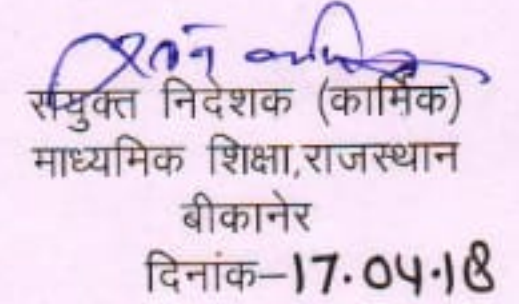 संयुक्त निदेशक (कार्मिक)
माध्यमिक शिक्षा,राजस्थान
बीकानेर
दिनांक–17.04.18